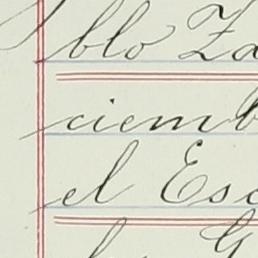 blo Za
ciemb
el Esc